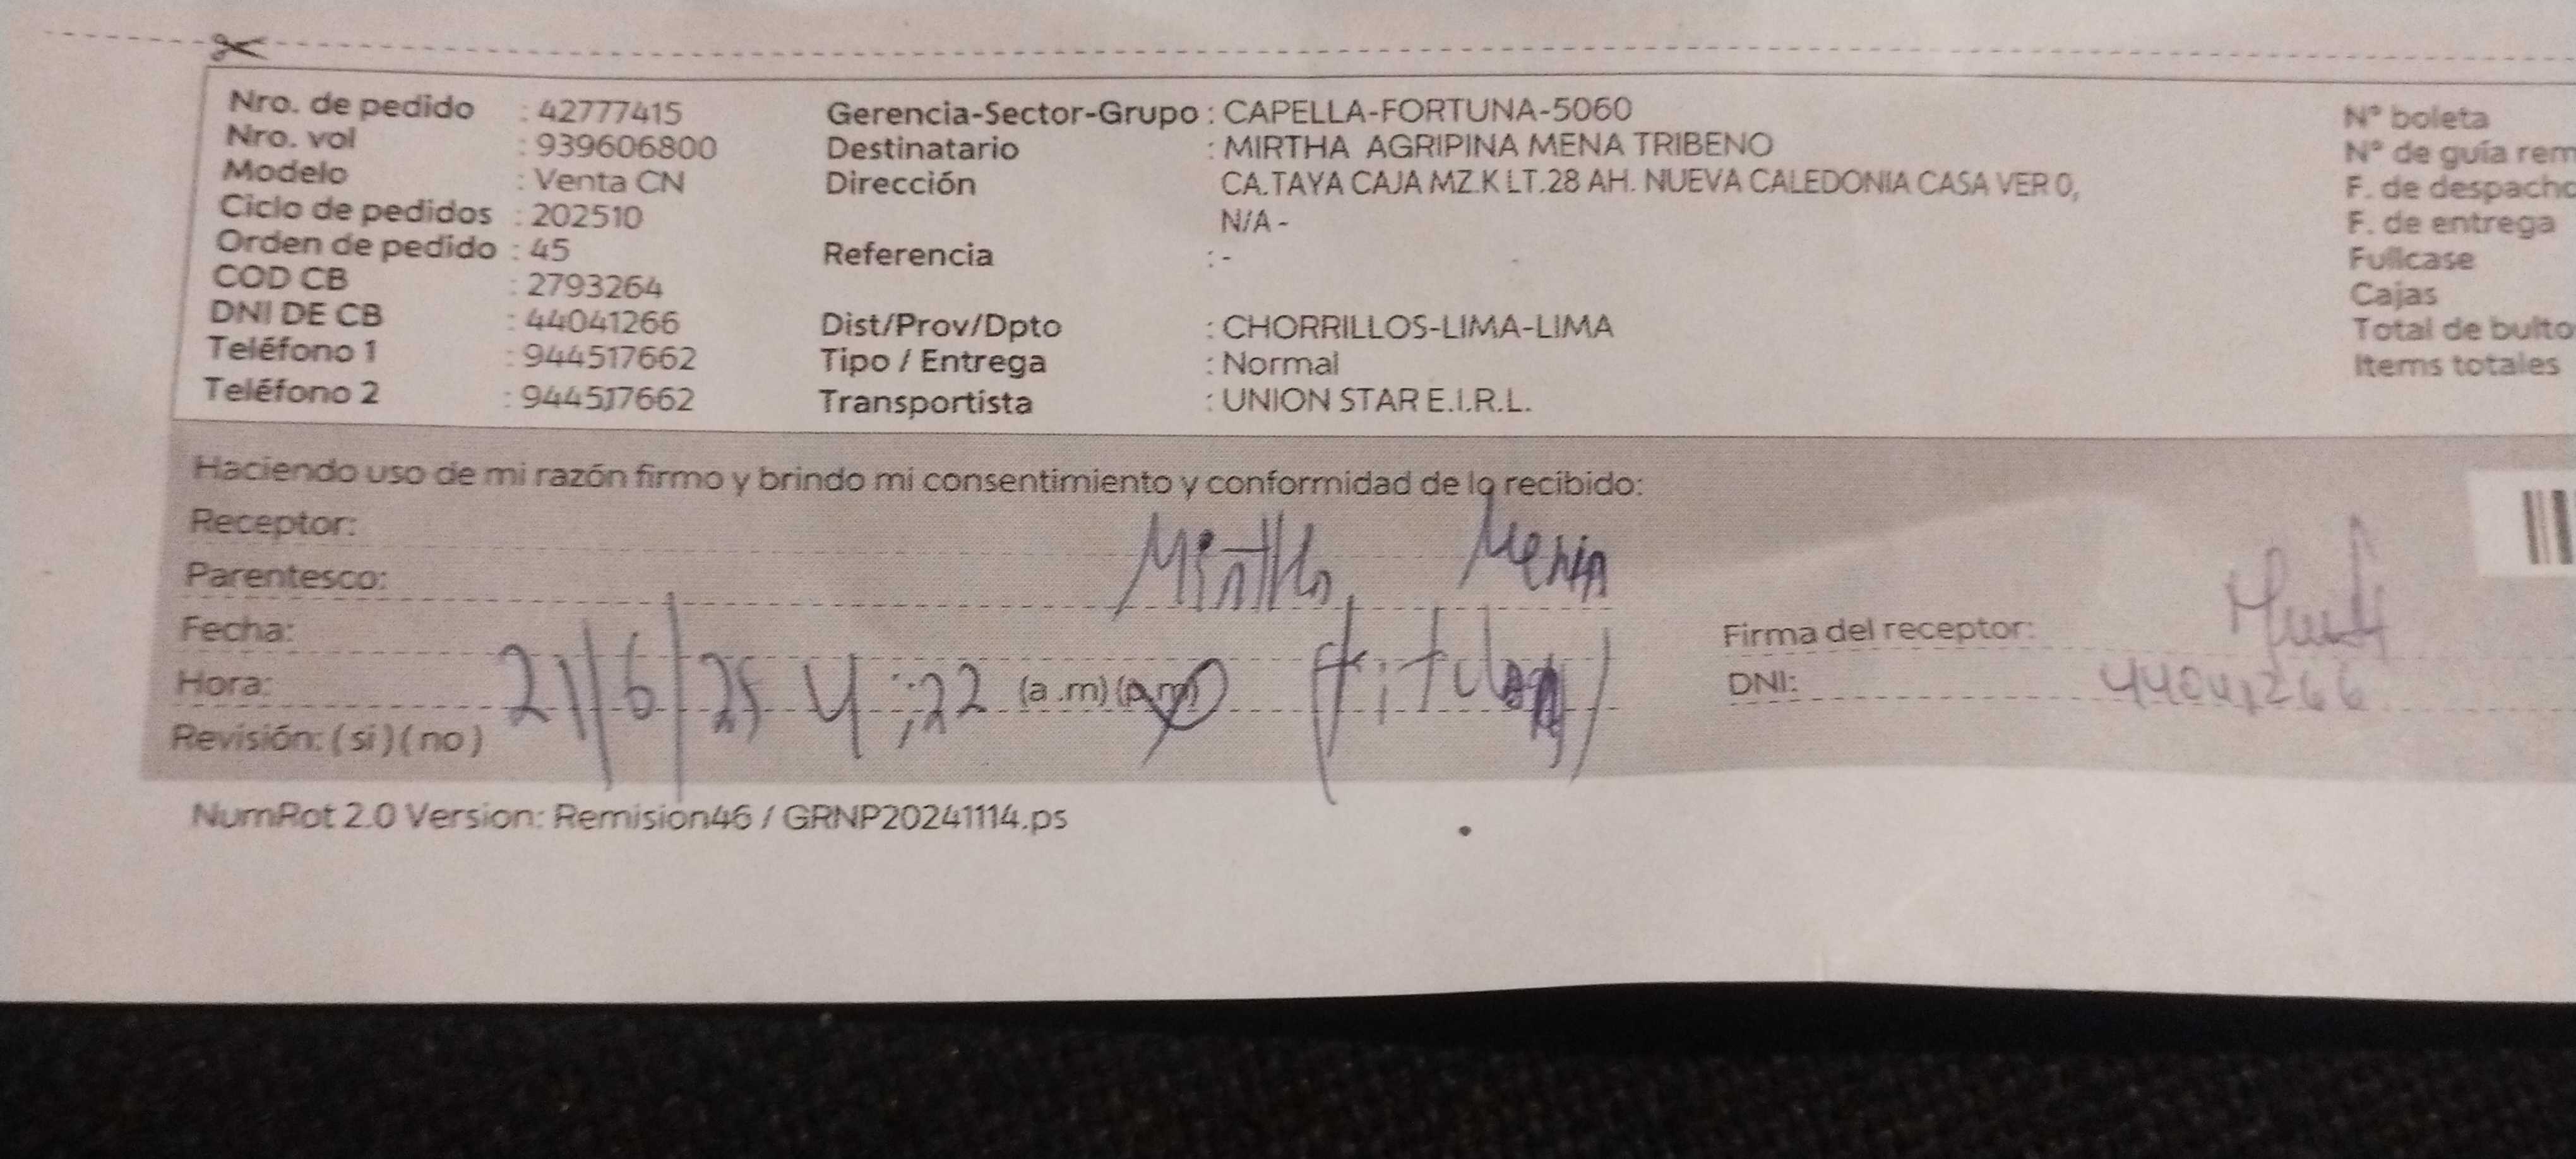 Nro. de pedido : 42777415 Gerencia-Sector-Grupo : CAPELLA-FORTUNA-5060 N° boleta
Nro. vol : 939606800 Destinatario : MIRTHA AGRIPINA MENA TRIBENO N° de guía rem
Modelo : Venta CN Dirección CA.TAYA CAJA MZ.K LT.28 AH. NUEVA CALEDONIA CASA VER 0, F. de despacho
Ciclo de pedidos : 202510 N/A - F. de entrega
Orden de pedido : 45 Referencia : - Fullcase
COD CB : 2793264 Cajas
DNI DE CB : 44041266 Dist/Prov/Dpto : CHORRILLOS-LIMA-LIMA Total de bulto
Teléfono 1 : 944517662 Tipo / Entrega : Normal Items totales
Teléfono 2 : 944517662 Transportista : UNION STAR E.I.R.L.
Haciendo uso de mi razón firmo y brindo mi consentimiento y conformidad de lo recibido:
Receptor: Mirtha Mena
Parentesco:
Fecha: Firma del receptor:
Hora: 21/6/25 4:22 (a .m) (p.m) (titular) DNI: 44041266
Revisión: ( si ) ( no )
NumRot 2.0 Version: Remision46 / GRNP20241114.ps